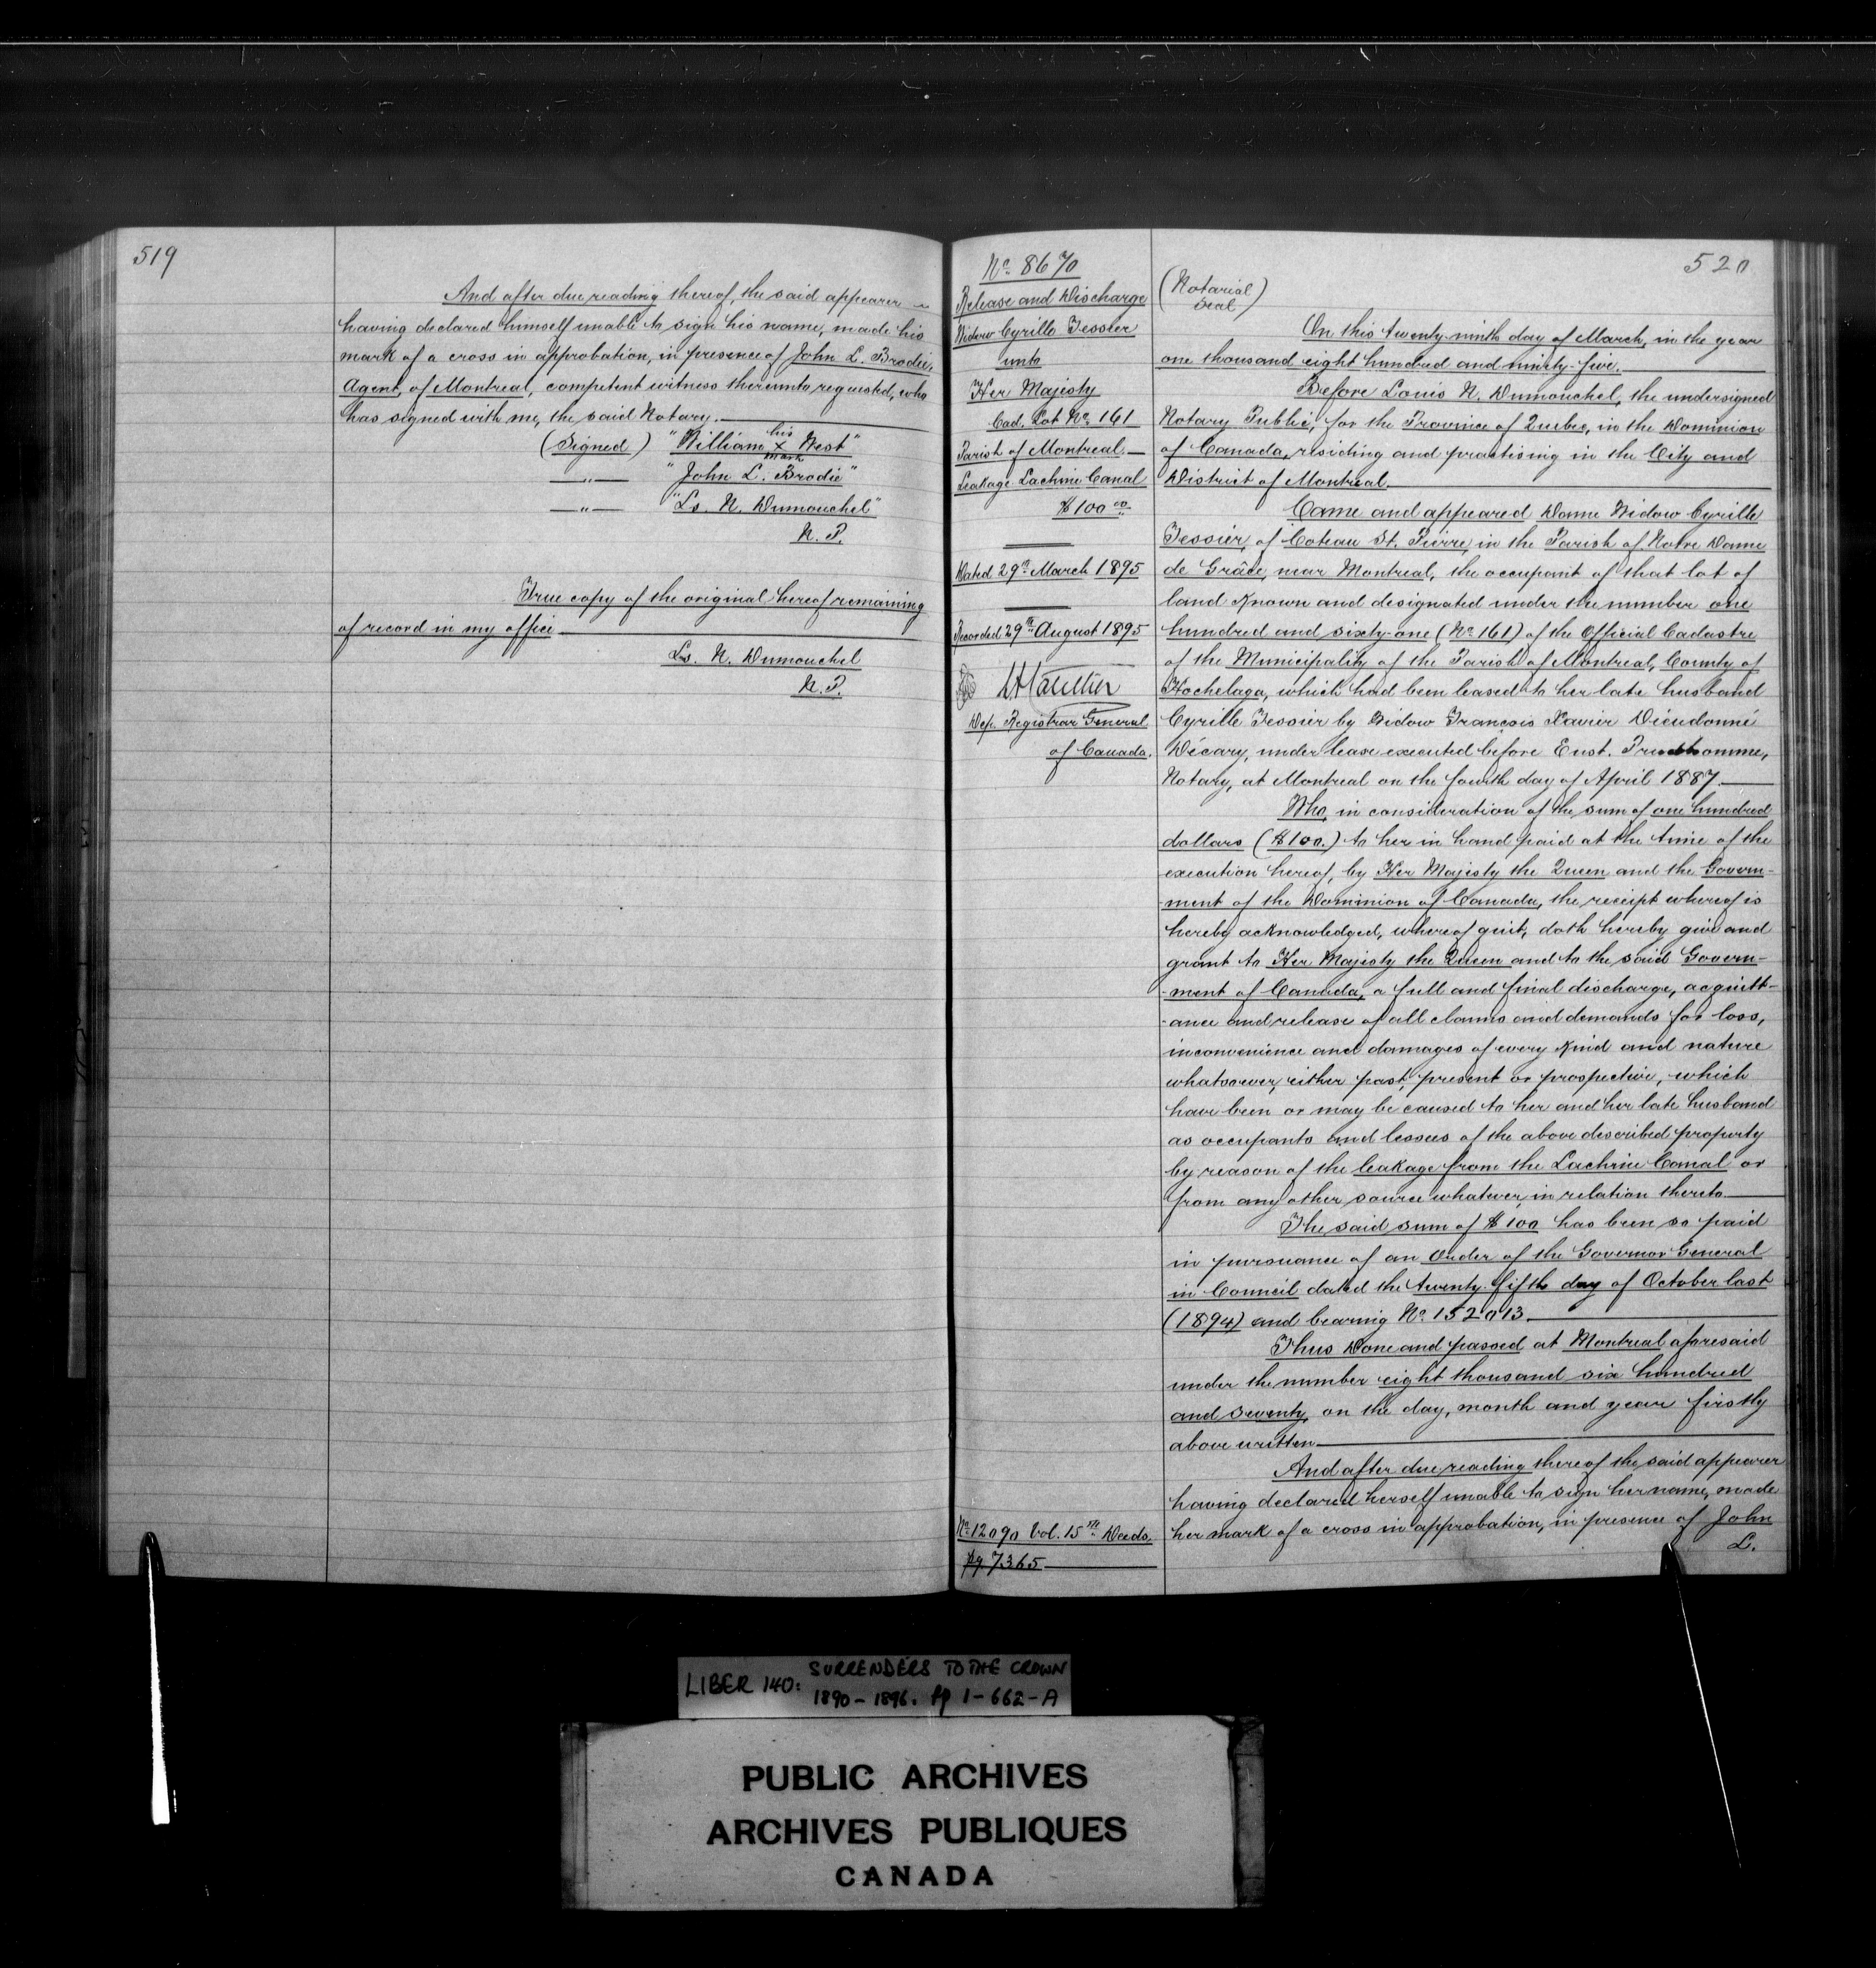 519
And after due reading thereof, the said appearer
having declared himself unable to sign his name, made his
mark of a cross in approbation, in presence of John L. Brodie,
Agent, of Montreal, competent witness thereunto requested, who
has signed with me, the said Notary.
(Signed) "William his x mark West"
—"— "John L. Brodie"
—"— "Ls. N. Dumouchel"
N. P.
True copy of the original hereof remaining
of record in my office
Ls. N. Dumouchel
N. P.
No. 8670
Release and Discharge
Widow Cyrille Tessier
unto
Her Majesty
Cad. Lot No. 161
Parish of Montreal.—
Leakage Lachine Canal
$100 00
Dated 29th March 1895
Recorded 29th August 1895
Dep. Registrar General
of Canada.
No. 12090 Vol. 15th Deeds.
pg. 7365
520
(Notarial
Seal)
On this twenty-ninth day of March, in the year
one thousand eight hundred and ninety-five.
Before Louis N. Dumouchel, the undersigned
Notary Public, for the Province of Quebec, in the Dominion
of Canada, residing and practising in the City and
District of Montreal.
Came and appeared Dame Widow Cyrille
Tessier, of Coteau St. Pierre, in the Parish of Notre Dame
de Grâce, near Montreal, the occupant of that lot of
land known and designated under the number one
hundred and sixty-one (No. 161) of the Official Cadastre
of the Municipality of the Parish of Montreal, County of
Hochelaga, which had been leased to her late husband
Cyrille Tessier by Widow François Xavier Dieudonné
Décary, under lease executed before Eust. Prudhomme,
Notary, at Montreal on the fourth day of April 1887.
Who, in consideration of the sum of one hundred
dollars ($100.) to her in hand paid at the time of the
execution hereof, by Her Majesty the Queen and the Govern-
-ment of the Dominion of Canada, the receipt whereof is
hereby acknowledged, whereof quit, doth hereby give and
grant to Her Majesty the Queen and to the said Govern-
-ment of Canada, a full and final discharge, acquitt-
-ance and release of all claims and demands for loss,
inconvenience and damages of every kind and nature
whatsoever, either past, present or prospective, which
have been or may be caused to her and her late husband
as occupants and lessees of the above described property
by reason of the leakage from the Lachine Canal or
from any other source whatever, in relation thereto.
The said sum of $100 has been so paid
in pursuance of an Order of the Governor General
in Council dated the twenty-fifth day of October last
(1894) and bearing No. 152013.
Thus Done and passed at Montreal aforesaid
under the number eight thousand six hundred
and seventy, on the day, month and year firstly
above written.
And after due reading thereof the said appearer
having declared herself unable to sign her name, made
her mark of a cross in approbation, in presence of John
L.
LIBER 140: SURRENDERS TO THE CROWN
1890-1896. pp 1-662-A
PUBLIC ARCHIVES
ARCHIVES PUBLIQUES
CANADA